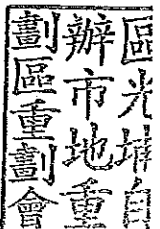 區光埔自
辦市地重
劃區重劃會